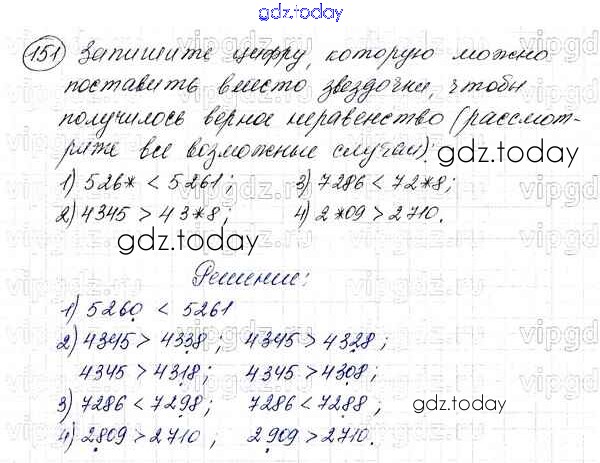 gdz.today
151 Запишите цифру, которую можно
поставить вместо звездочки, чтобы
получилось верное неравенство (рассмот-
рите все возможные случаи):
gdz.today
1) 526* < 5261; 3) 7286 < 72*8;
2) 4345 > 43*8; 4) 2*09 > 2710.
gdz.today
Решение:
1) 5260 < 5261
2) 4345 > 4338; 4345 > 4328;
4345 > 4318; 4345 > 4308;
3) 7286 < 7298; 7286 < 7288;
gdz.today
4) 2809 > 2710; 2909 > 2710.